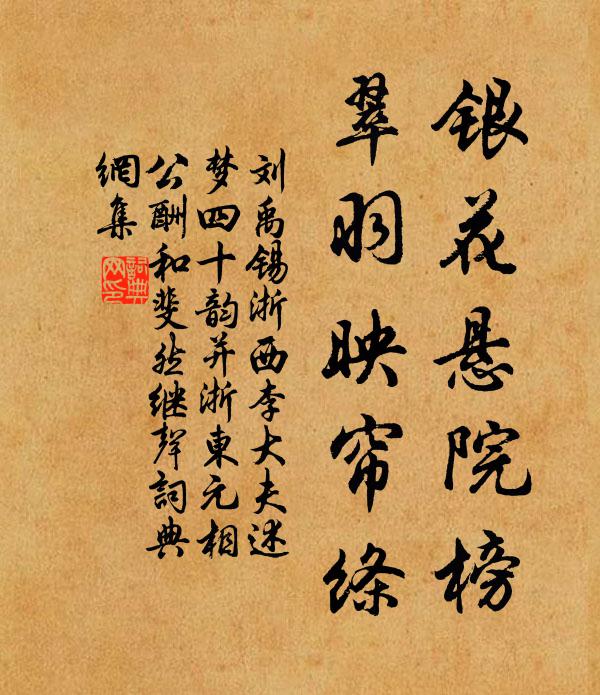 银花悬院榜
翠羽映帘绦
刘禹锡浙西李大夫述
梦四十韵并浙東元相
公酬和斐然继聲詞典
網集
詞典网印